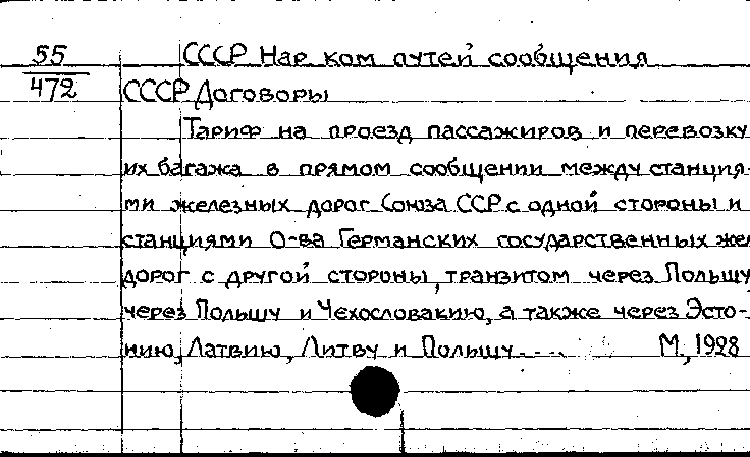 55
472
СССР Нар ком путей сообщения
СССР Договоры
Тариф на проезд пассажиров и перевозку
их багажа в прямом сообщении между станция-
ми железных дорог Союза ССР с одной стороны и
станциями О-ва Германских государственных жел
дорог с другой стороны, транзитом через Польшу
через Польшу и Чехословакию, а также через Эсто-
нию, Латвию, Литву и Польшу.... М., 1928